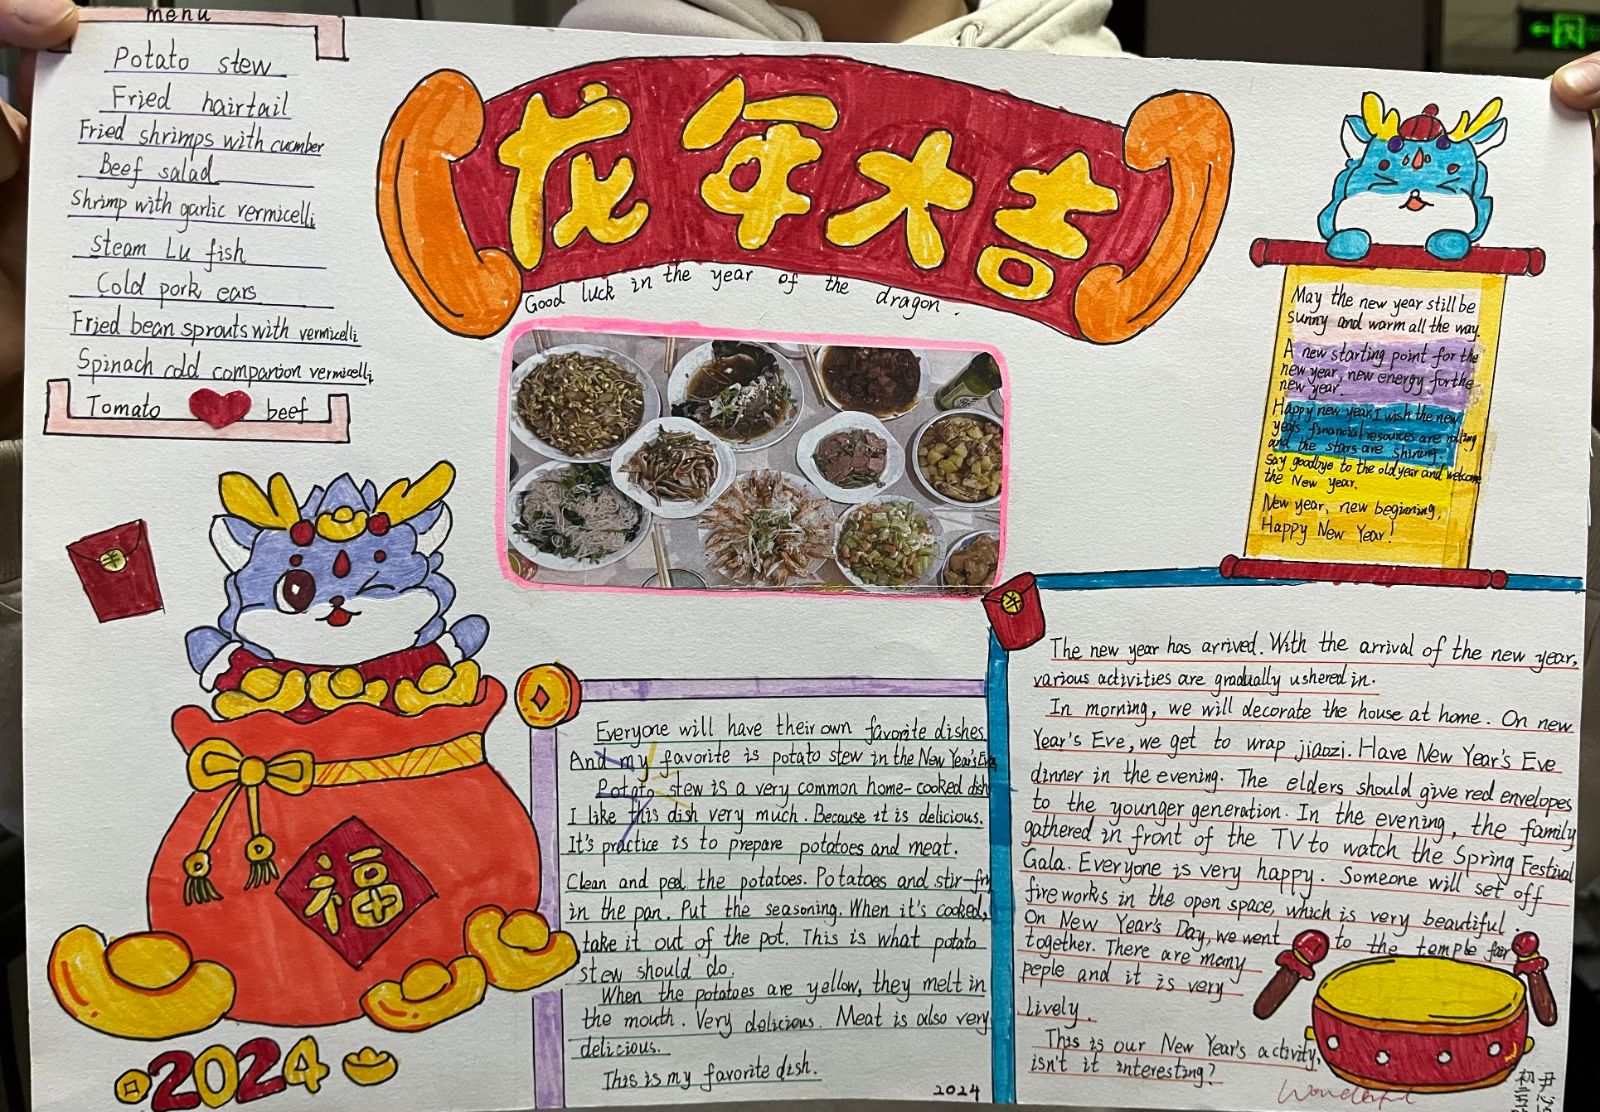 menu
Potato stew
Fried hairtail
Fried shrimps with cucmber
Beef salad
Shrimp with garlic vermicelli
Steam Lu fish
Cold pork ears
Fried bean sprouts with vermicelli
Spinach cold comparison vermicelli
Tomato beef
龙年大吉
Good luck in the year of the dragon.
May the new year still be
sunny and warm all the way.
A new starting point for the
new year, new energy for the
new year.
Happy new year, I wish the new
year's financial resources are rolling
and the stars are shining.
Say goodbye to the old year and welcome
the New year.
New year, new beginning,
Happy New Year!
福
2024
Everyone will have their own favorite dishes.
And my favorite is potato stew in the New Year's Eve
Potato stew is a very common home-cooked dish
I like this dish very much. Because it is delicious.
It's practice is to prepare potatoes and meat.
Clean and peel the potatoes. Potatoes and stir-fry
in the pan. Put the seasoning. When it's cooked,
take it out of the pot. This is what potato
stew should do.
When the potatoes are yellow, they melt in
the mouth. Very delicious. Meat is also very
delicious.
This is my favorite dish.
2024
The new year has arrived. With the arrival of the new year,
various activities are gradually ushered in.
In morning, we will decorate the house at home. On new
Year's Eve, we get to wrap jiaozi. Have New Year's Eve
dinner in the evening. The elders should give red envelopes
to the younger generation. In the evening, the family
gathered in front of the TV to watch the Spring Festival
Gala. Everyone is very happy. Someone will set off
fireworks in the open space, which is very beautiful.
On New Year's Day, we went to the temple fair
together. There are many
peple and it is very
lively.
This is our New Year's activity,
isn't it interesting?
Wonderful